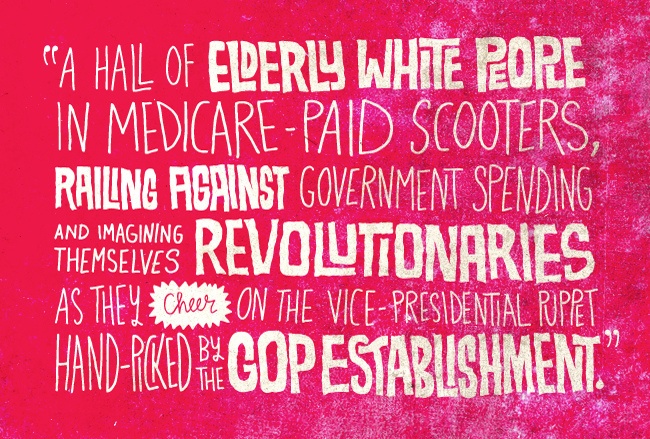 “A HALL OF ELDERLY WHITE PEOPLE
IN MEDICARE-PAID SCOOTERS,
RAILING AGAINST GOVERNMENT SPENDING
AND IMAGINING
THEMSELVES REVOLUTIONARIES
AS THEY Cheer ON THE VICE-PRESIDENTIAL PUPPET
HAND-PICKED BY THE GOP ESTABLISHMENT.”